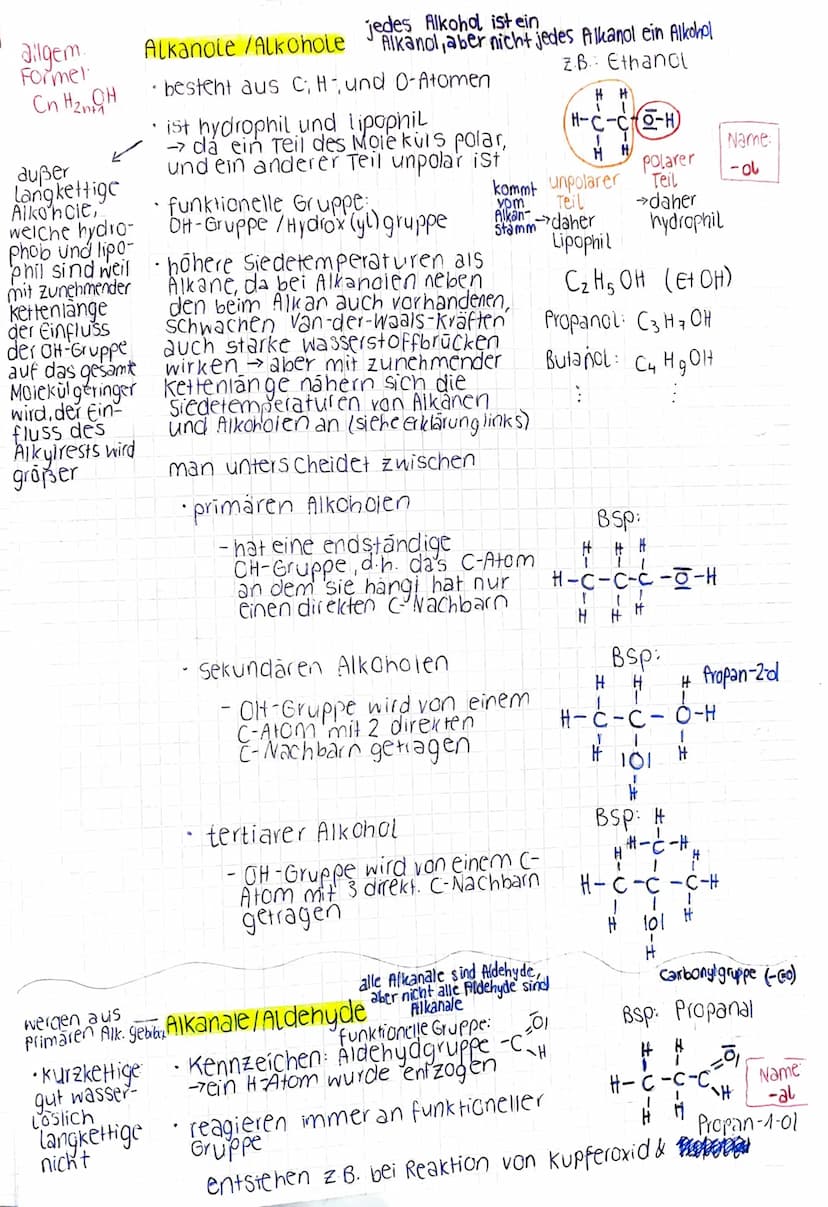 allgem.
Formel:
CnH2n+1OH
Alkanole/Alkohole
jedes Alkohol ist ein
Alkanol, aber nicht jedes Alkanol ein Alkohol
· besteht aus C-, H-, und O-Atomen
· ist hydrophil und lipophil
→ da ein Teil des Moleküls polar,
und ein anderer Teil unpolar ist
außer
langkettige
Alkohole,
welche hydro-
phob und lipo-
phil sind weil
mit zunehmender
Kettenlänge
der Einfluss
der OH-Gruppe
auf das gesamte
Molekül geringer
wird, der Ein-
fluss des
Alkylrests wird
größer
· funktionelle Gruppe:
OH-Gruppe/Hydrox(yl)gruppe
· höhere Siedetemperaturen als
Alkane, da bei Alkanolen neben
den beim Alkan auch vorhandenen,
schwachen Van-der-Waals-Kräften
auch starke Wasserstoffbrücken
wirken → aber mit zunehmender
Kettenlänge nähern sich die
Siedetemperaturen von Alkanen
und Alkoholen an (siehe Erklärung links)
z.B.: Ethanol
H H
H-C-C-O-H
H H
Name:
-ol
kommt
vom
Alkan-
stamm
unpolarer
Teil
→ daher
Lipophil
polarer
Teil
→ daher
hydrophil
C2H5OH (EtOH)
Propanol: C3H7OH
Butanol: C4H9OH
⋮ ⋮
man unterscheidet zwischen
· primären Alkoholen
- hat eine endständige
OH-Gruppe, d.h. das C-Atom
an dem sie hängt hat nur
einen direkten C-Nachbarn
BSP:
H H H
H-C-C-C-O-H
H H H
· sekundären Alkoholen
- OH-Gruppe wird von einem
C-Atom mit 2 direkten
C-Nachbarn getragen
BSP:
Propan-2-ol
H H H
H-C-C-O-H
H |O| H
H
· tertiärer Alkohol
- OH-Gruppe wird von einem C-
Atom mit 3 direkt. C-Nachbarn
getragen
BSP: H
H-C-H
H H
H-C-C-C-H
H |O| H
H
Carbonylgruppe (-CO)
werden aus
primären Alk. gebildet
Alkanale/Aldehyde
alle Alkanale sind Aldehyde,
aber nicht alle Aldehyde sind
Alkanale
· kurzkettige
gut wasser-
löslich
langkettige
nicht
funktionelle Gruppe:
· Kennzeichen: Aldehydgruppe -C O H
→ ein H-Atom wurde entzogen
· reagieren immer an funktioneller
Gruppe
BSP: Propanal
H H O
H-C-C-C
H H H
Name
-al
Propan-1-ol
entstehen z.B. bei Reaktion von Kupferoxid &